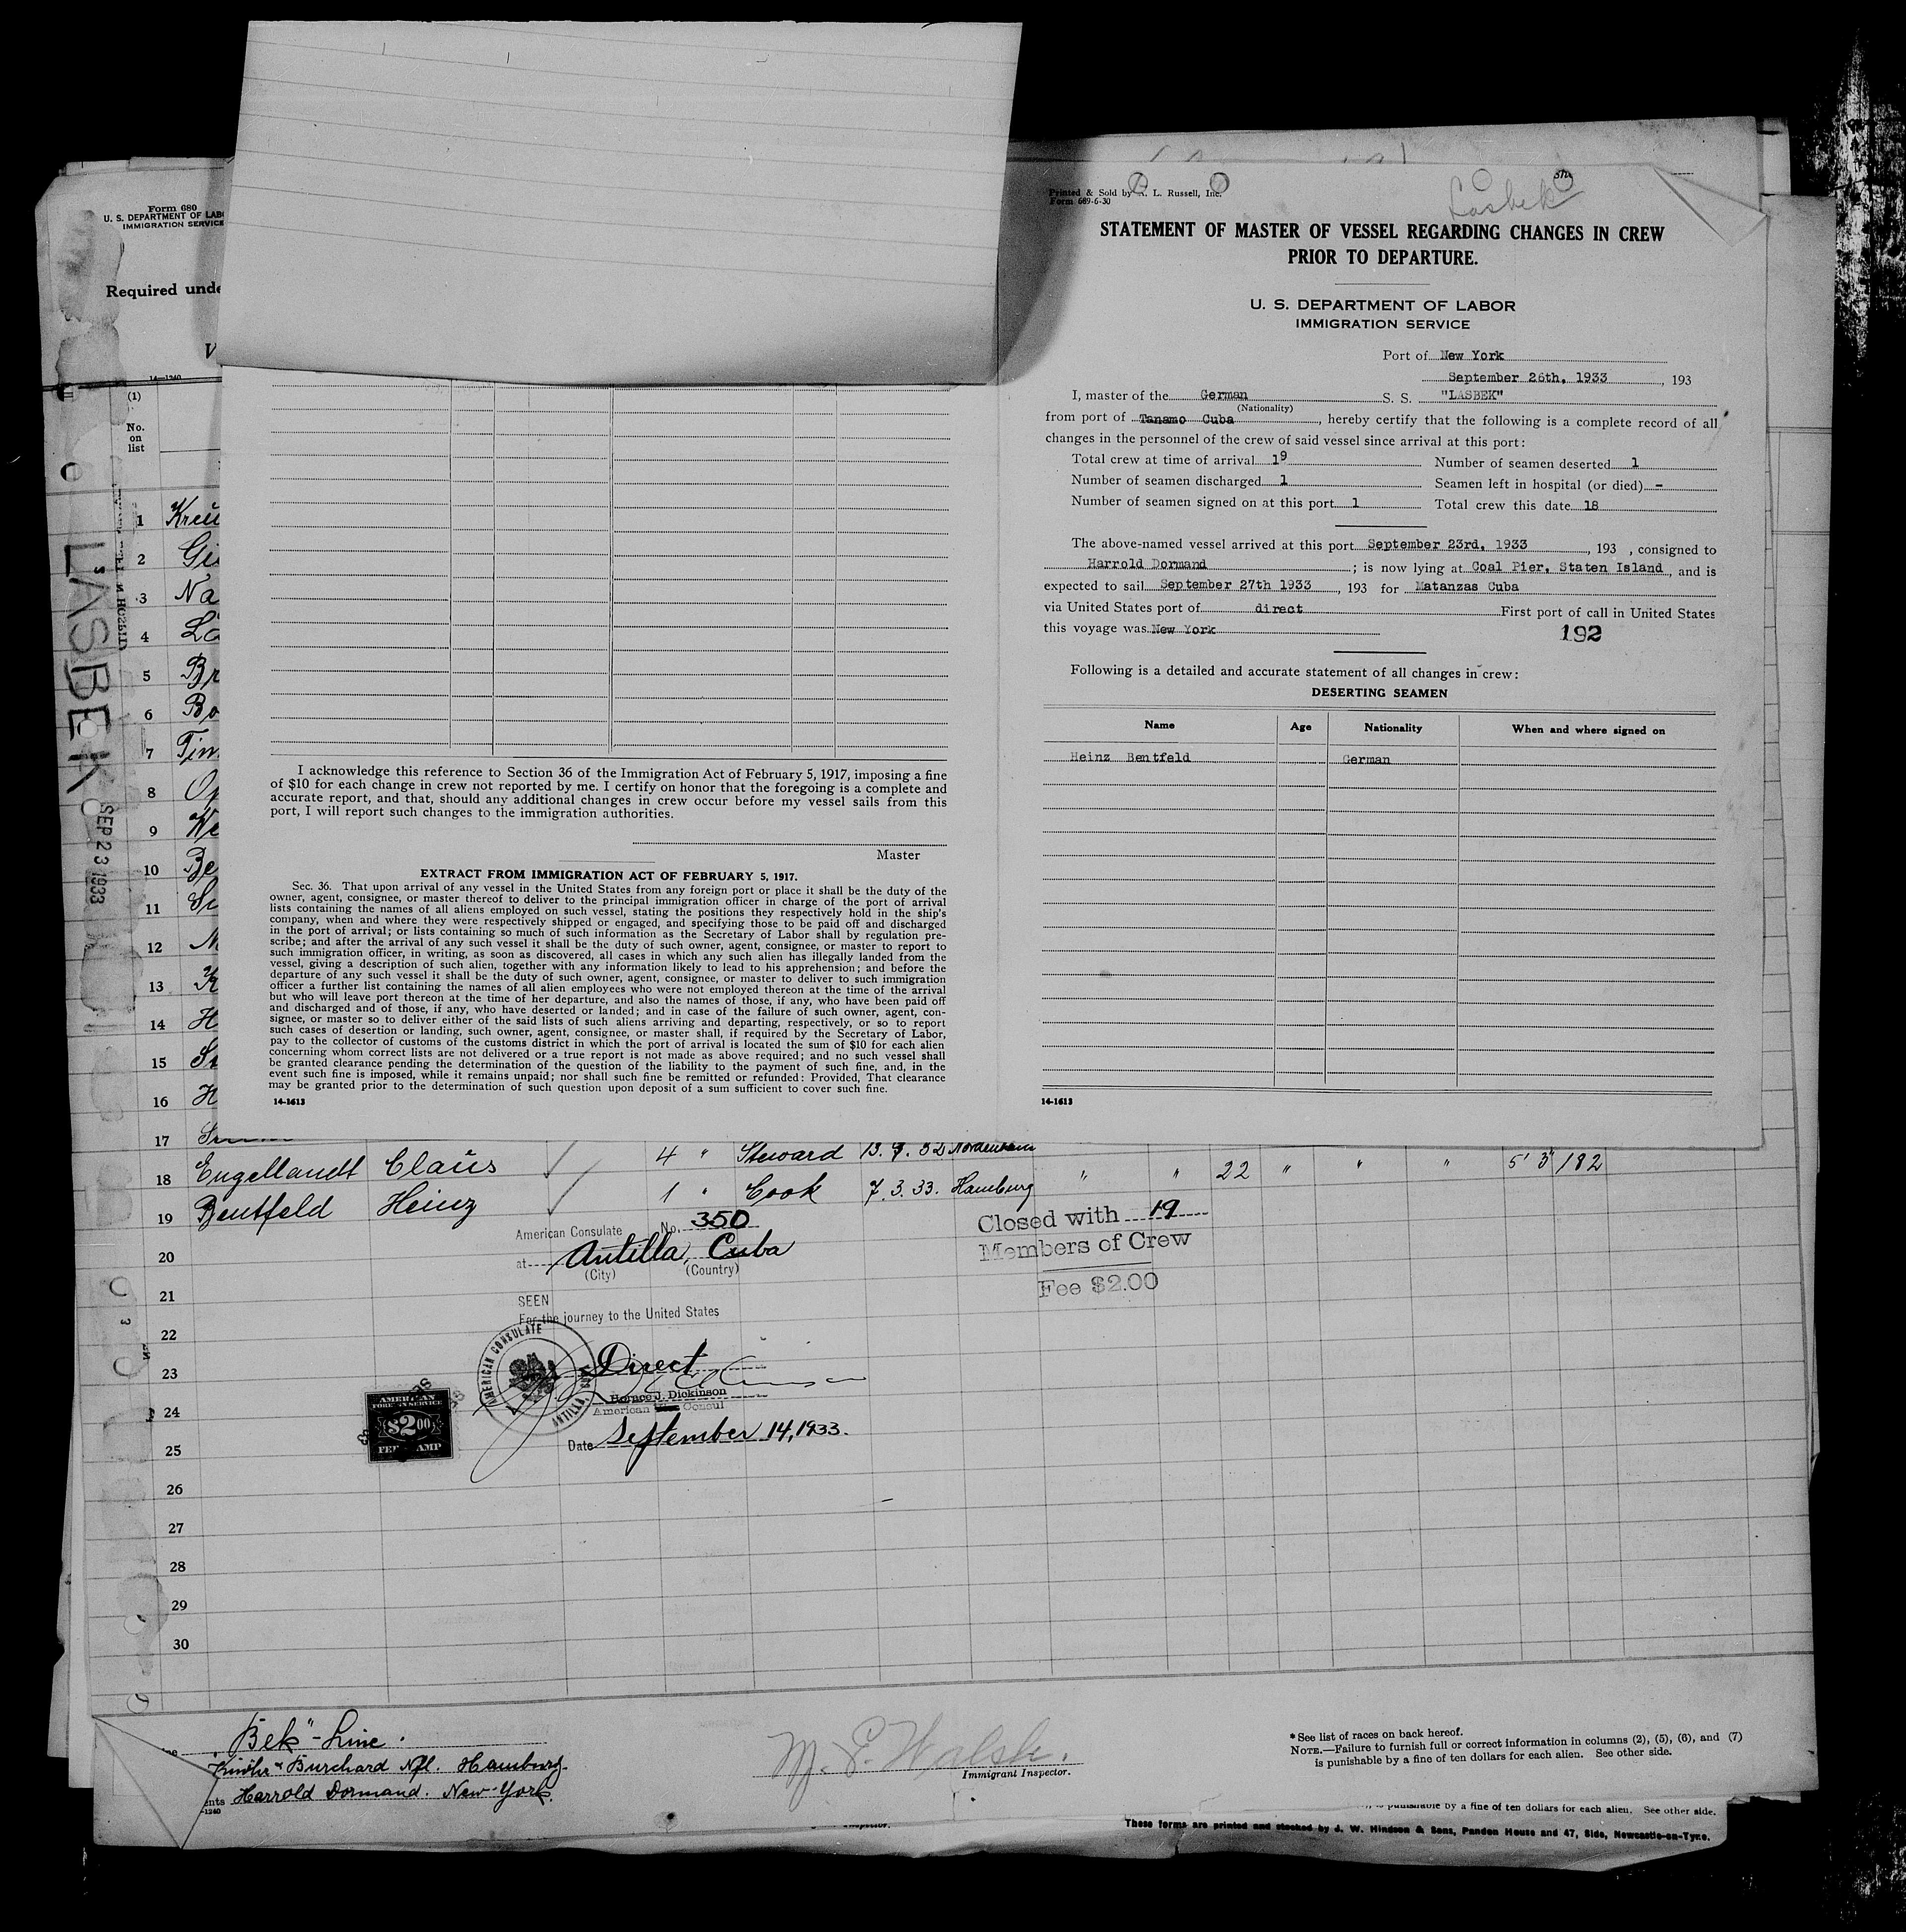 Form 680
U. S. DEPARTMENT OF LAB
IMMIGRATION SERVICE
Required unde
V
14—1240
(1)
No.
on
list
1 Kreu
2 Ge
3 Na
4 La
5 Br
6 Bo
7 Tim
8 Op
9 We
10 Be
11 Su
12 M
13 K
14 H
15 St
16 H
17
LASBEK
SEP 23 1933
I acknowledge this reference to Section 36 of the Immigration Act of February 5, 1917, imposing a fine
of $10 for each change in crew not reported by me. I certify on honor that the foregoing is a complete and
accurate report, and that, should any additional changes in crew occur before my vessel sails from this
port, I will report such changes to the immigration authorities.
Master
EXTRACT FROM IMMIGRATION ACT OF FEBRUARY 5, 1917.
Sec. 36. That upon arrival of any vessel in the United States from any foreign port or place it shall be the duty of the
owner, agent, consignee, or master thereof to deliver to the principal immigration officer in charge of the port of arrival
lists containing the names of all aliens employed on such vessel, stating the positions they respectively hold in the ship's
company, when and where they were respectively shipped or engaged, and specifying those to be paid off and discharged
in the port of arrival; or lists containing so much of such information as the Secretary of Labor shall by regulation pre-
scribe; and after the arrival of any such vessel it shall be the duty of such owner, agent, consignee, or master to report to
such immigration officer, in writing, as soon as discovered, all cases in which any such alien has illegally landed from the
vessel, giving a description of such alien, together with any information likely to lead to his apprehension; and before the
departure of any such vessel it shall be the duty of such owner, agent, consignee, or master to deliver to such immigration
officer a further list containing the names of all alien employees who were not employed thereon at the time of the arrival
but who will leave port thereon at the time of her departure, and also the names of those, if any, who have been paid off
and discharged and of those, if any, who have deserted or landed; and in case of the failure of such owner, agent, con-
signee, or master so to deliver either of the said lists of such aliens arriving and departing, respectively, or so to report
such cases of desertion or landing, such owner, agent, consignee, or master shall, if required by the Secretary of Labor,
pay to the collector of customs of the customs district in which the port of arrival is located the sum of $10 for each alien
concerning whom correct lists are not delivered or a true report is not made as above required; and no such vessel shall
be granted clearance pending the determination of the question of the liability to the payment of such fine, and, in the
event such fine is imposed, while it remains unpaid; nor shall such fine be remitted or refunded: Provided, That clearance
may be granted prior to the determination of such question upon deposit of a sum sufficient to cover such fine.
14-1613
Printed & Sold by L. Russell, Inc.
Form 689-6-30
Lasbek
STATEMENT OF MASTER OF VESSEL REGARDING CHANGES IN CREW
PRIOR TO DEPARTURE.
U. S. DEPARTMENT OF LABOR
IMMIGRATION SERVICE
Port of New York
September 26th, 1933, 193
I, master of the German S. S. "LASBEK"
(Nationality)
from port of Tanamo Cuba, hereby certify that the following is a complete record of all
changes in the personnel of the crew of said vessel since arrival at this port:
Total crew at time of arrival 19 Number of seamen deserted 1
Number of seamen discharged 1 Seamen left in hospital (or died) -
Number of seamen signed on at this port 1 Total crew this date 18
The above-named vessel arrived at this port September 23rd, 1933, 193 , consigned to
Harrold Dormand ; is now lying at Coal Pier, Staten Island, and is
expected to sail September 27th 1933, 193 for Matanzas Cuba
via United States port of direct First port of call in United States
this voyage was New York
192
Following is a detailed and accurate statement of all changes in crew:
DESERTING SEAMEN
Name Age Nationality When and where signed on
Heinz Bentfeld German
14-1613
18 Engellandt Claus 4 " Steward 13. 9. 32 Nordenham " " 22 " " " 5' 3" 182
19 Bentfeld Heinz 1 " Cook 7. 3. 33. Hamburg
20
21
22
23
24
25
26
27
28
29
30
American Consulate No. 350
at Antilla, Cuba
(City) (Country)
SEEN
For the journey to the United States
Direct
AMERICAN CONSULATE
ANTILLA,
Horace J. Dickinson
American Consul
Date September 14, 1933.
AMERICAN
FOREIGN SERVICE
$2.00
FEE STAMP
Closed with 19
Members of Crew
Fee $2.00
"Bek"-Line.
Burchard Nfl. Hamburg.
ents Harrold Dormand. New-York.
-1240
M. E. Walsh.
Immigrant Inspector.
* See list of races on back hereof.
NOTE.—Failure to furnish full or correct information in columns (2), (5), (6), and (7)
is punishable by a fine of ten dollars for each alien. See other side.
is punishable by a fine of ten dollars for each alien. See other side.
These forms are printed and stocked by J. W. Hindson & Sons, Pandon House and 47, Side, Newcastle-on-Tyne.